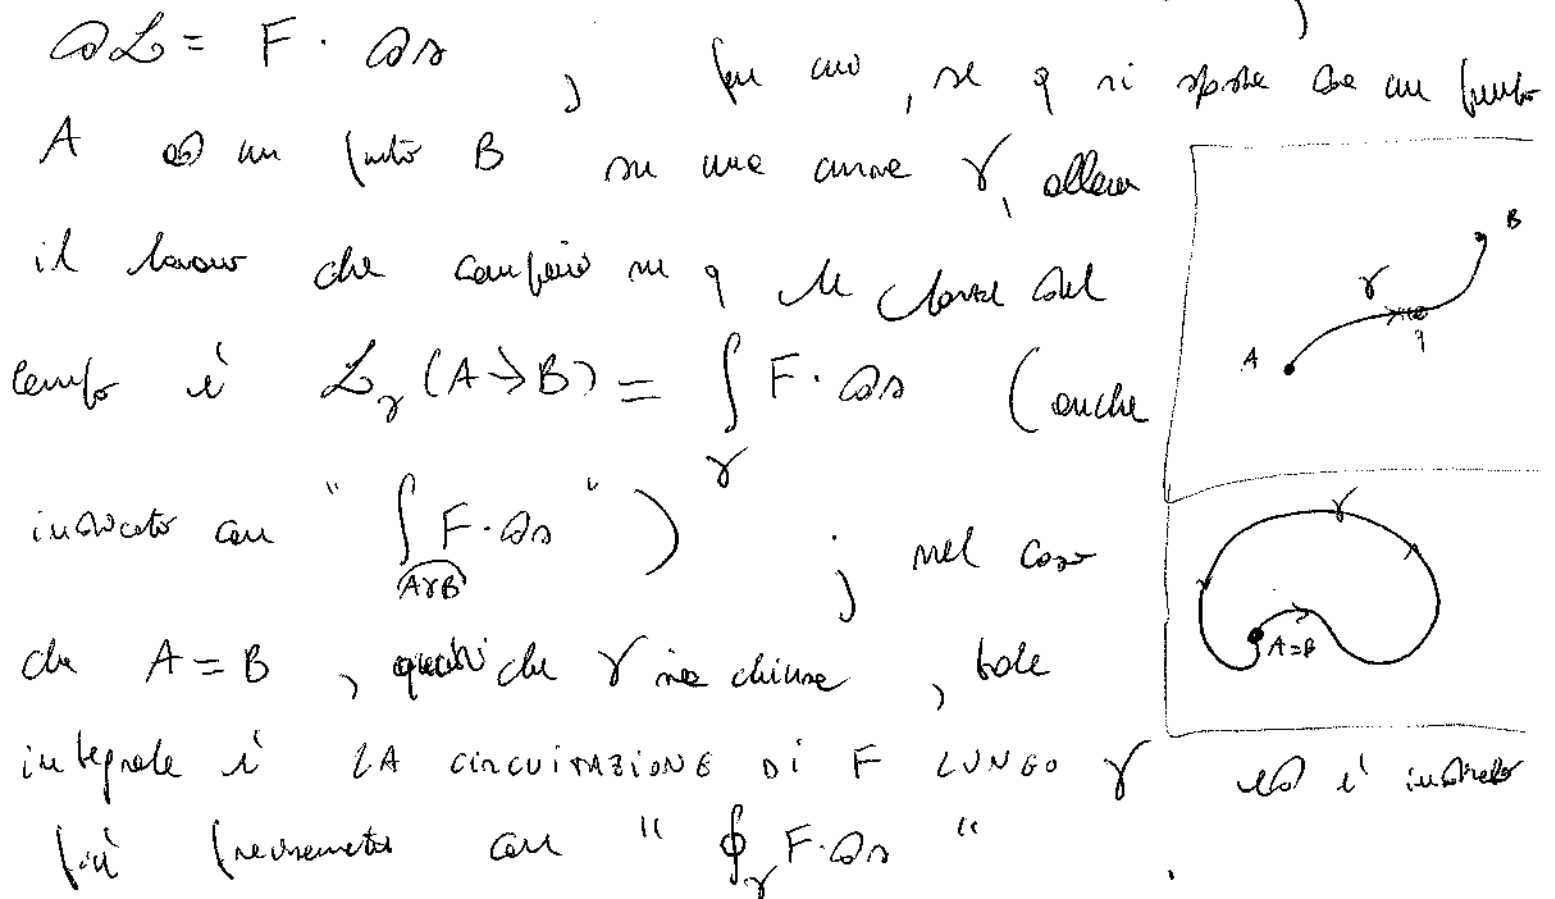 dℒ = F · ds ; per cui, se q si sposta da un punto
A ad un punto B su una curva γ, allora
il lavoro che compiono su q le forze del
campo è ℒ_γ (A→B) = ∫_γ F · ds (anche
indicato con " ∫_{AγB} F · ds ") ; nel caso
che A = B , quindi che γ sia chiusa , tale
integrale è LA CIRCUITAZIONE DI F LUNGO γ ed è indicato
più precisamente con " ∮_γ F · ds " .
B
γ
q
A
γ
A=B